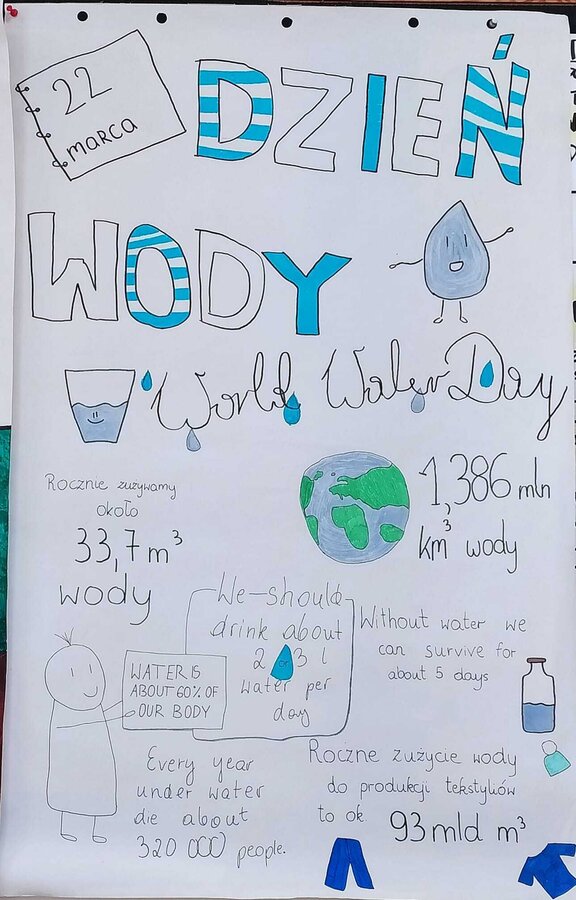 22
marca
DZIEŃ
WODY
World Water Day
Rocznie zużywamy
około
33,7 m³
wody
1,386 mln
km³ wody
We should
drink about
2 or 3 l
water per
day
Without water we
can survive for
about 5 days
WATER IS
ABOUT 60% OF
OUR BODY
Every year
under water
die about
320 000 people.
Roczne zużycie wody
do produkcji tekstyliów
to ok. 93 mld m³